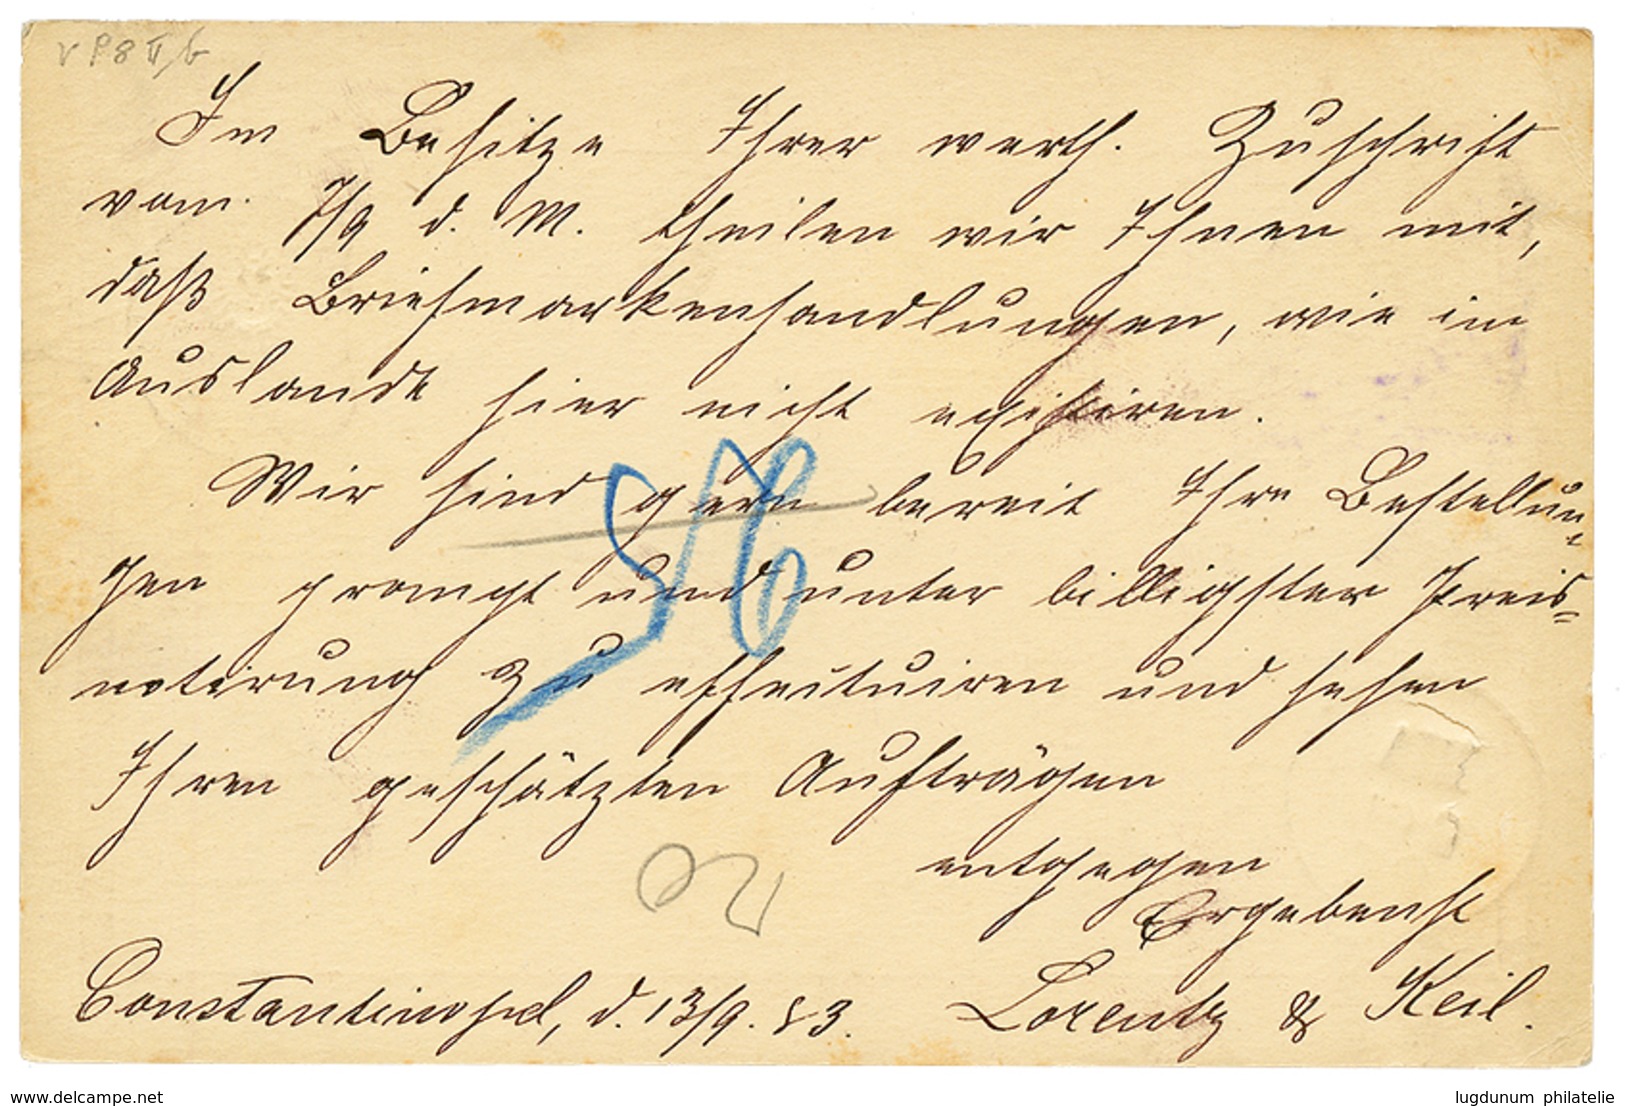 V P8 II/b
Im Besitze Ihrer werth. Zuschrift
vom 7/9 d. M. theilen wir Ihnen mit,
daß Briefmarkenhandlungen, wie im
Auslande hier nicht existiren.
Wir sind gern bereit Ihre Bestellun-
gen prompt und unter billigster Preis-
notirung zu effectuiren und sehen
Ihren geschätzten Aufträgen
entgegen
Ergebenst
Constantinopel, d. 13/9. 83. Lorentz & Keil.
www.delcampe.net lugdunum philatelie